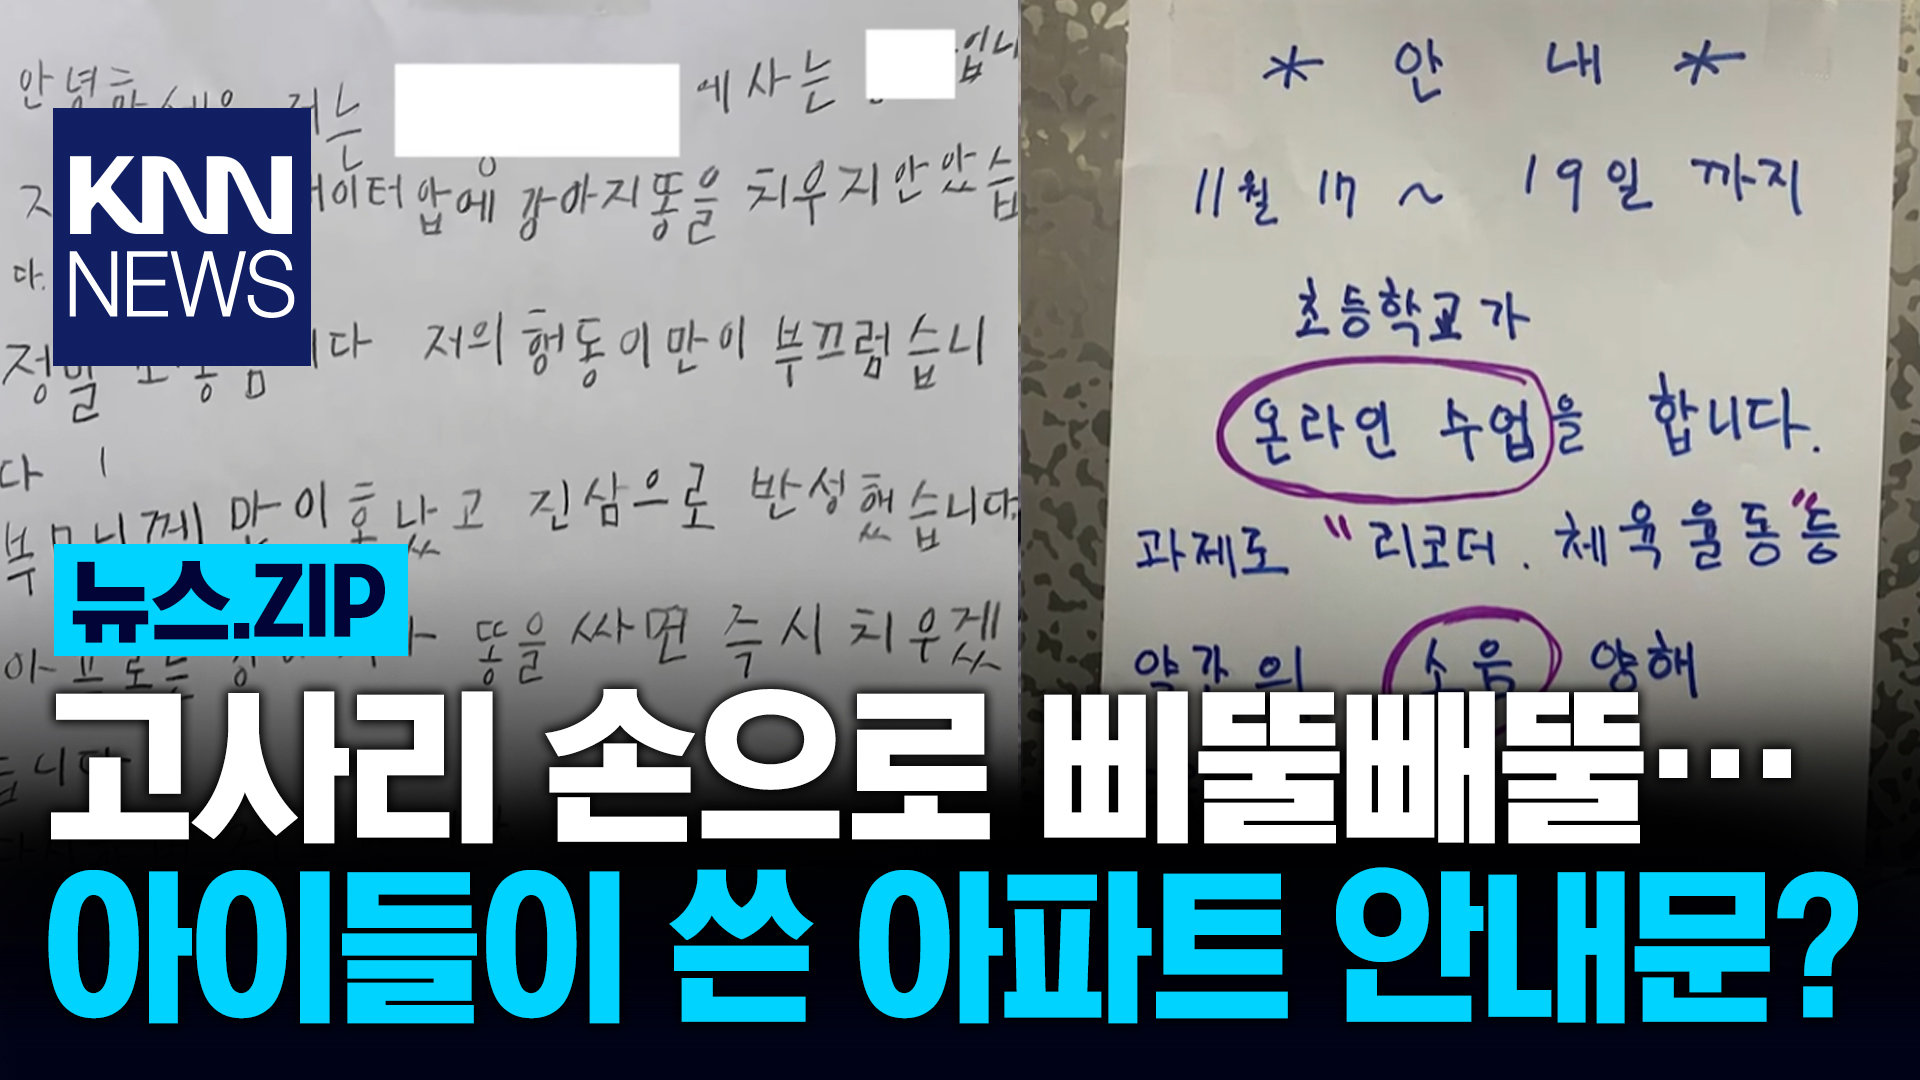 안녕하세요 저는
에 사는
입니
이터 압에 강아지 똥을 치우지 안았습
다.
정말 죄송합니다 저의 행동이 만이 부끄럽습니
다
부모니께 만이 혼났고 진심으로 반성했습니다
아프로는 똥을 싸면 즉시 치우겠
습니다
* 안 내 *
11월 17 ~ 19일 까지
초등학교가
온라인 수업을 합니다.
과제로 "리코더. 체육율동"등
약간의 소음 양해
KNN
NEWS
뉴스.ZIP
고사리 손으로 삐뚤빼뚤…
아이들이 쓴 아파트 안내문?